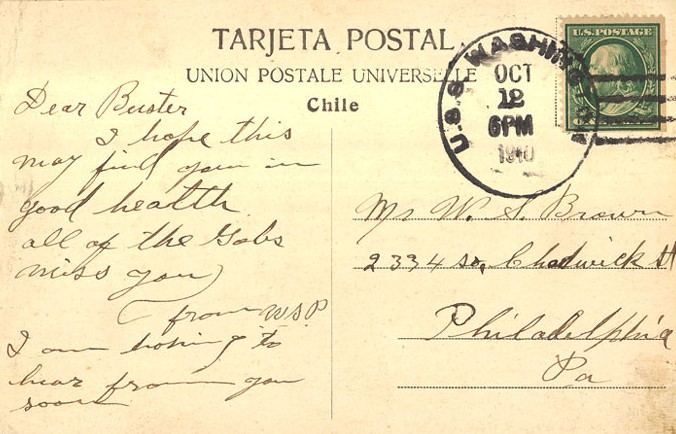 TARJETA POSTAL
UNION POSTALE UNIVERSELLE
Chile
U.S.S. WASHINGTON
OCT
12
6PM
1910
U.S. POSTAGE
Dear Buster
I hope this
may find you in
good health.
all of the Gobs
miss you
from WSP.
I am hoping to
hear from you
soon
Mr W. S. Brown
2334 so, Chadwick St
Philadelphia
Pa